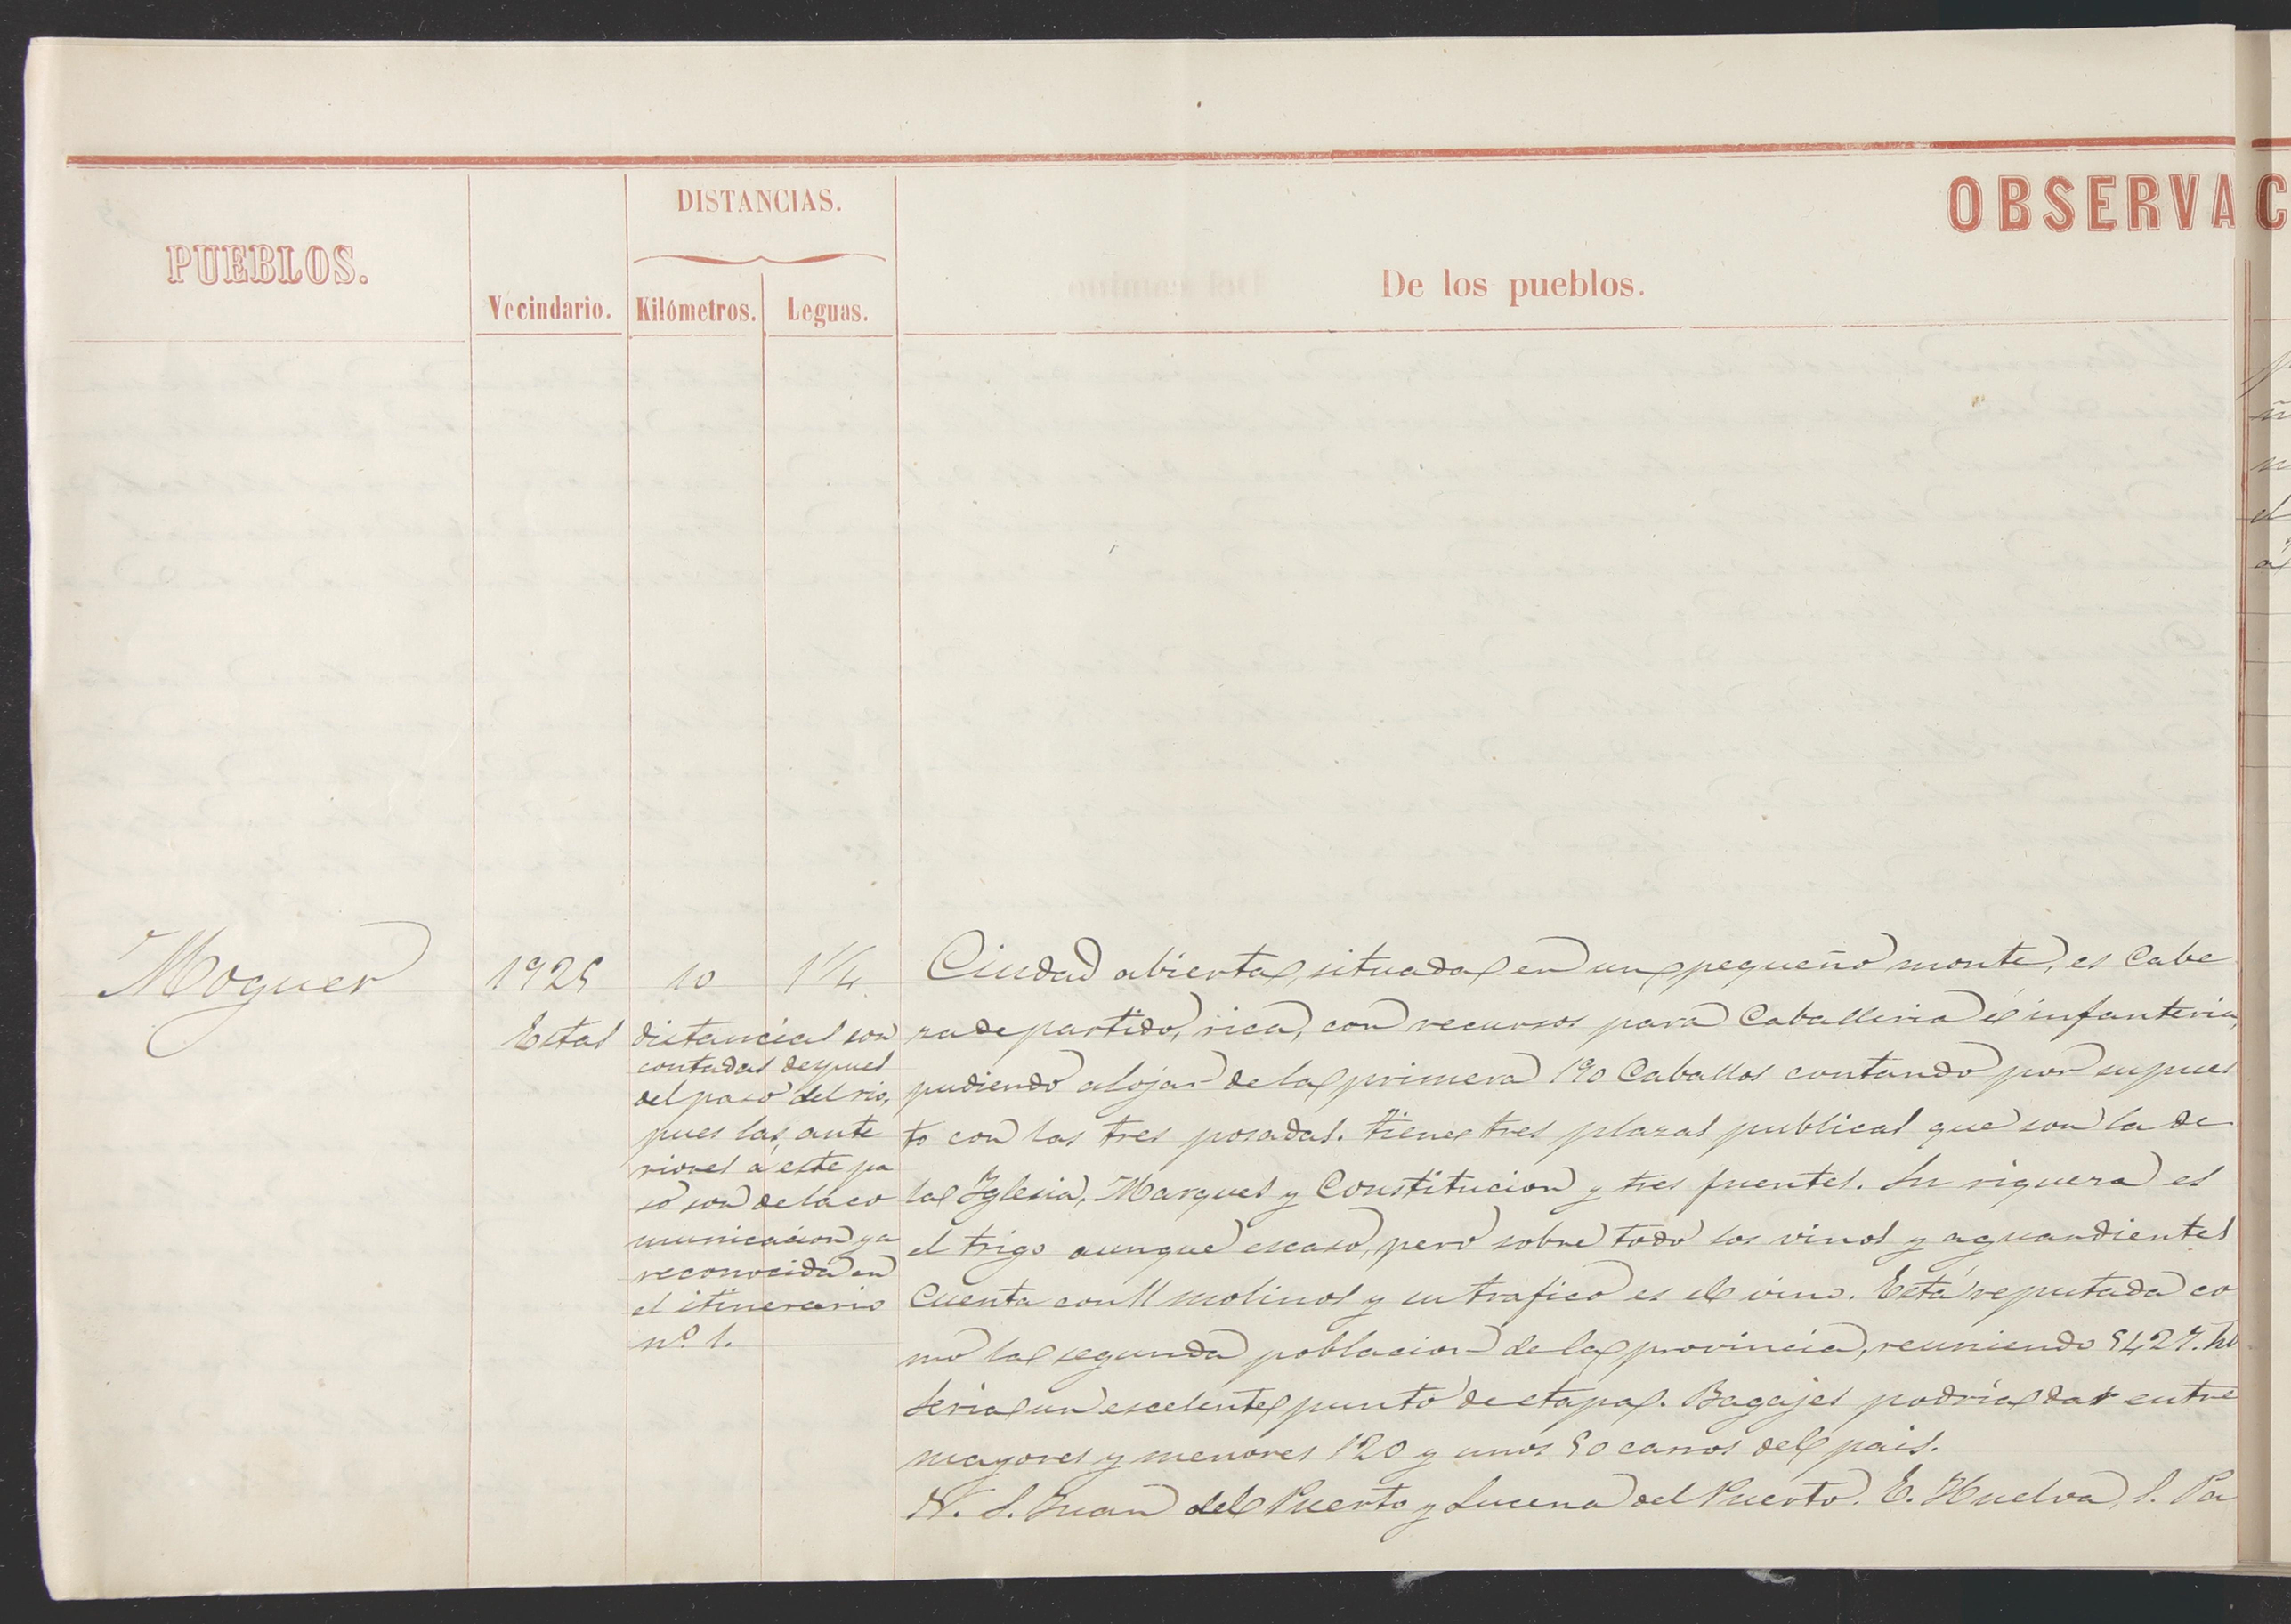 OBSERVAC
DISTANCIAS.
PUEBLOS.
De los pueblos.
Vecindario. Kilómetros. Leguas.
Moguer 1925 10 1 1/4
Ciudad abierta, situada en un pequeño monte, es Cabe
za de partido, rica, con recursos para Caballeria é infanteria,
pudiendo alojar de la primera 190 Caballos contando por supues
to con las tres posadas. tiene tres plazas publicas que son la de
la Iglesia, Marques y Constitucion y tres fuentes. Su riqueza es
el trigo aunque escaso, pero sobre todo los vinos y aguardientes
Cuenta con 11 molinos y su trafico es el vino. Está reputada co
mo la segunda poblacion de la provincia, reuniendo 5427. hs
Seria un escelente punto de etapa. Bagajes podria dar entre
mayores y menores 120 y unos 50 carros del pais.
N. S. Juan del Puerto y Lucena del Puerto. E. Huelva, S. Pa
Estas distancias son
contadas despues
del paso del rio,
pues las ante
riores á este pa
so son de la co
municacion ya
reconocida en
el itinerario
nº 1.